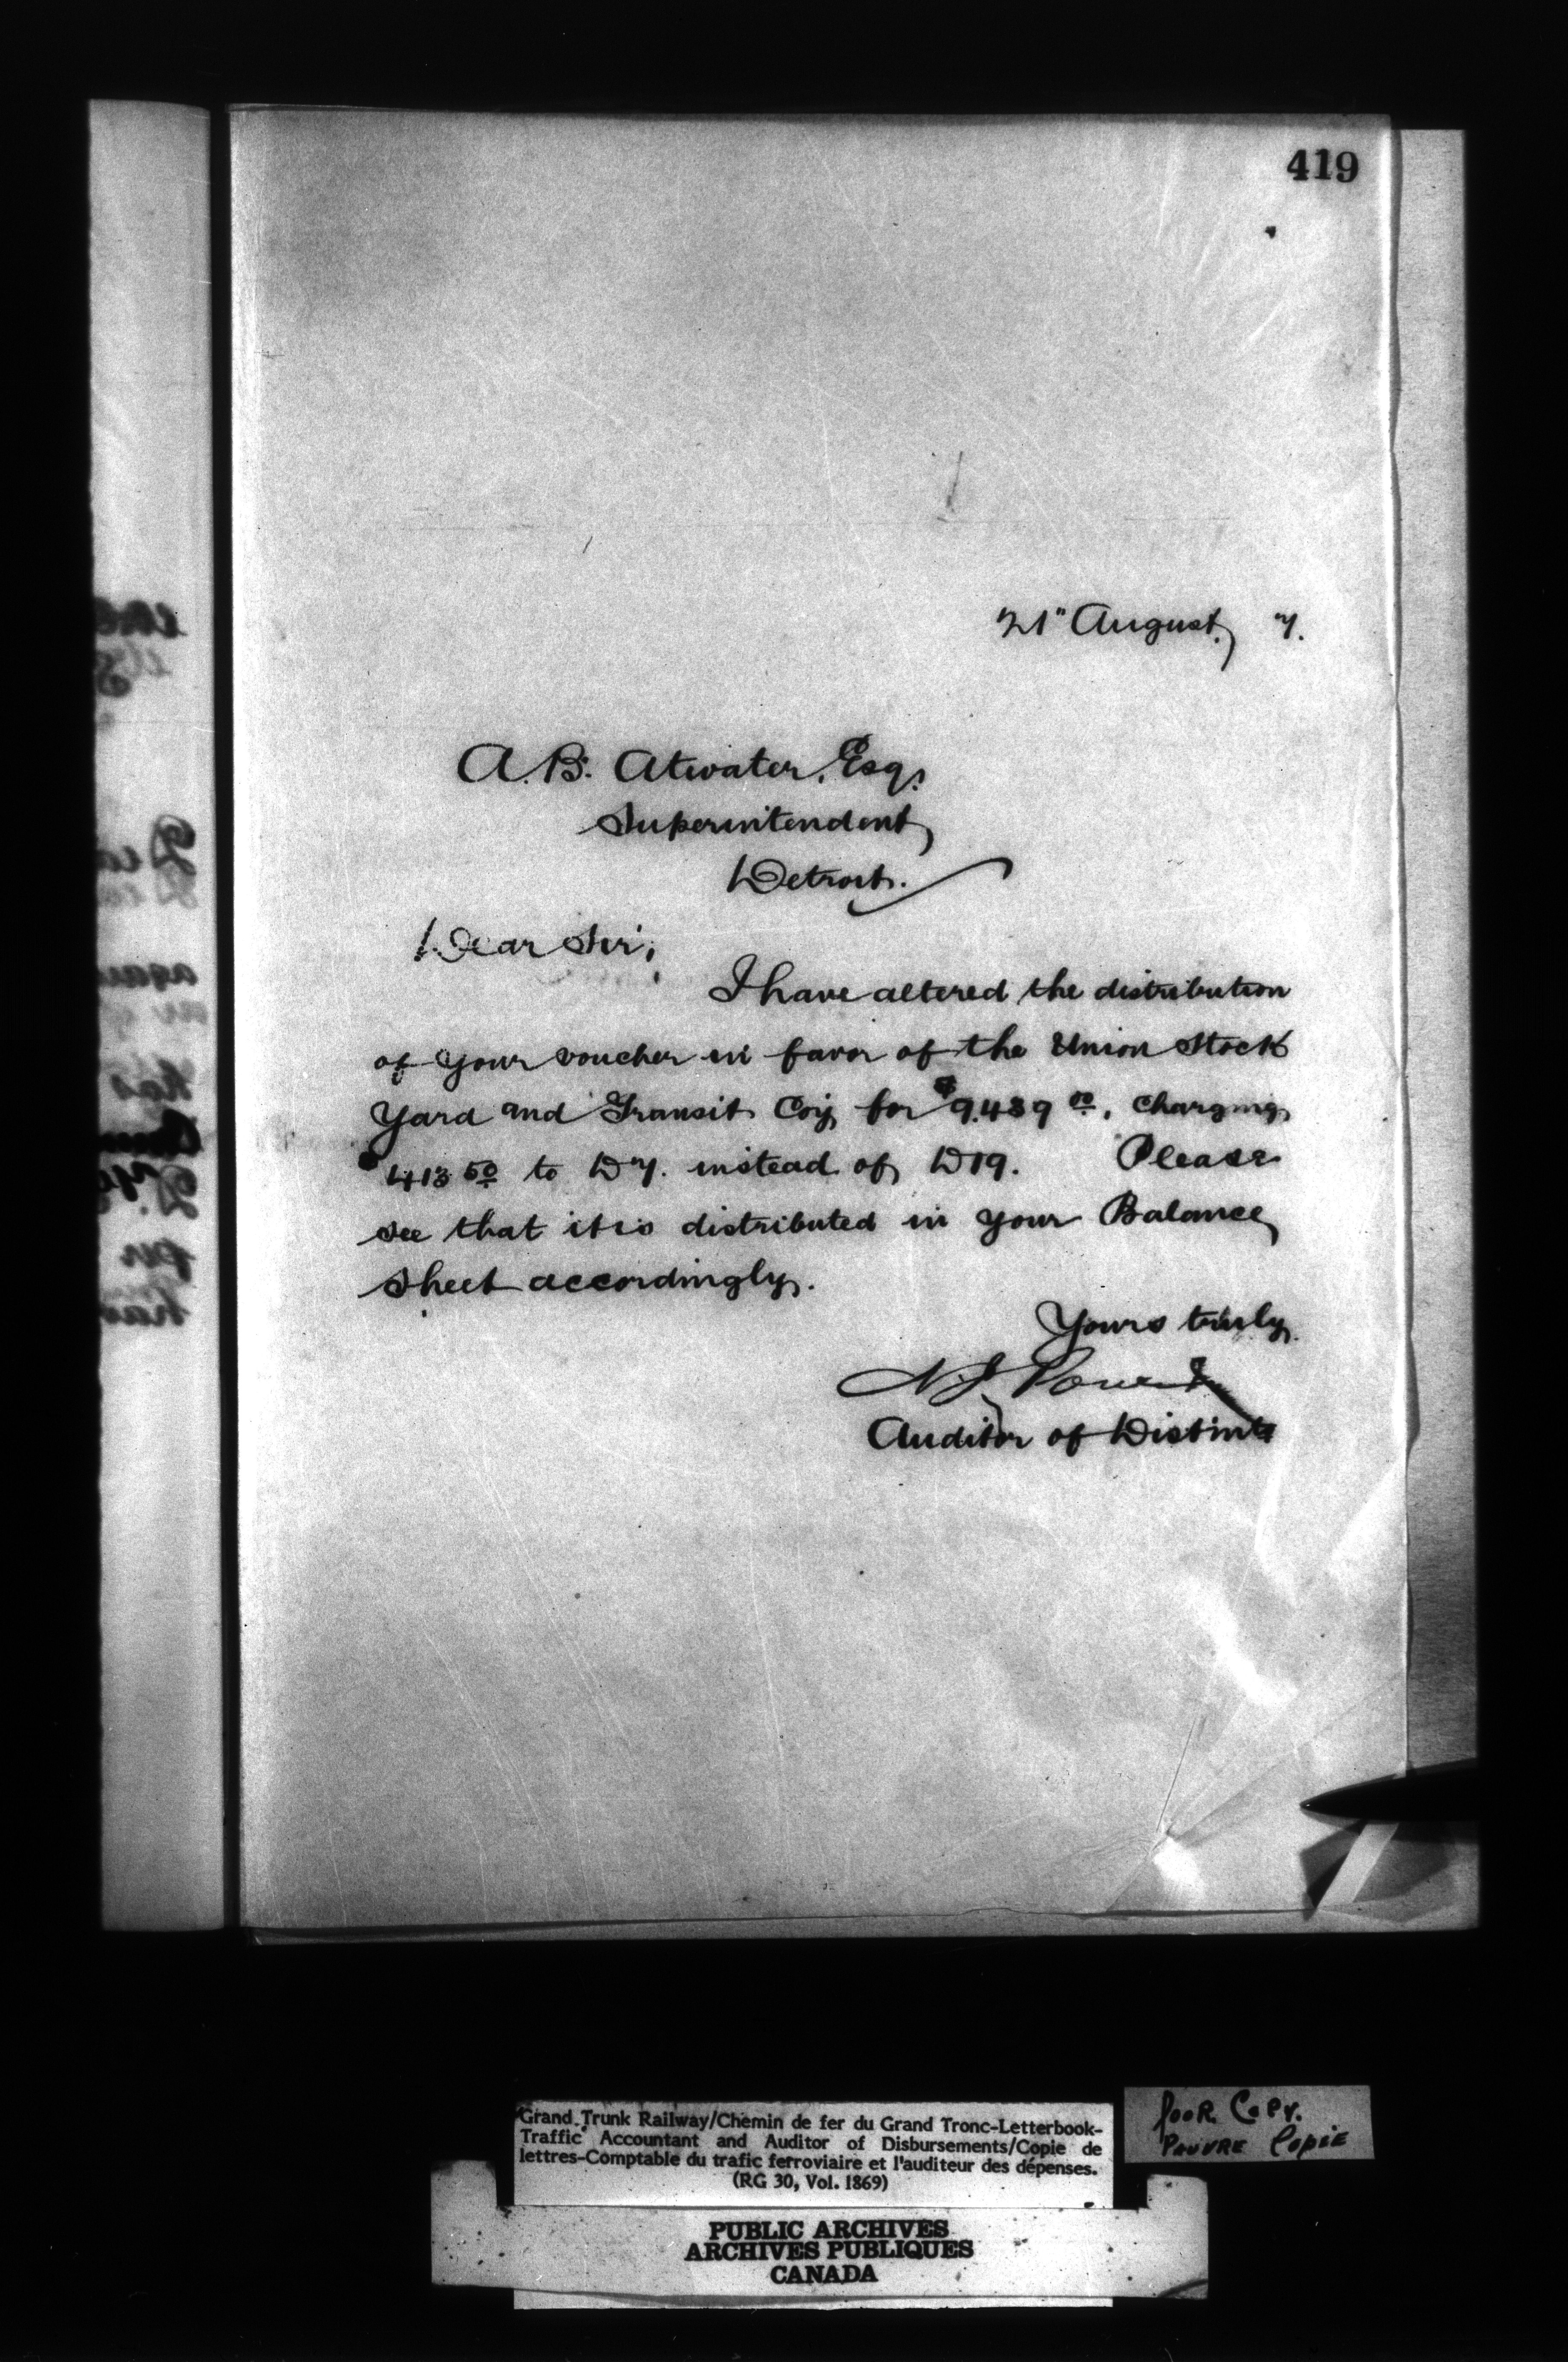 419
21" August, 7.
A. B. Atwater, Esq.
Superintendent,
Detroit.
Dear Sir,
I have altered the distribution
of your voucher in favor of the Union Stock
Yard and Transit Coy for $9.489 00, charging
$413 50 to D7. instead of D19. Please
see that it is distributed in your Balance
Sheet accordingly.
Yours truly,
Auditor of Disbmts
Grand Trunk Railway/Chemin de fer du Grand Tronc-Letterbook-
Traffic Accountant and Auditor of Disbursements/Copie de
lettres-Comptable du trafic ferroviaire et l'auditeur des dépenses.
(RG 30, Vol. 1869)
POOR COPY.
PAUVRE COPIE
PUBLIC ARCHIVES
ARCHIVES PUBLIQUES
CANADA